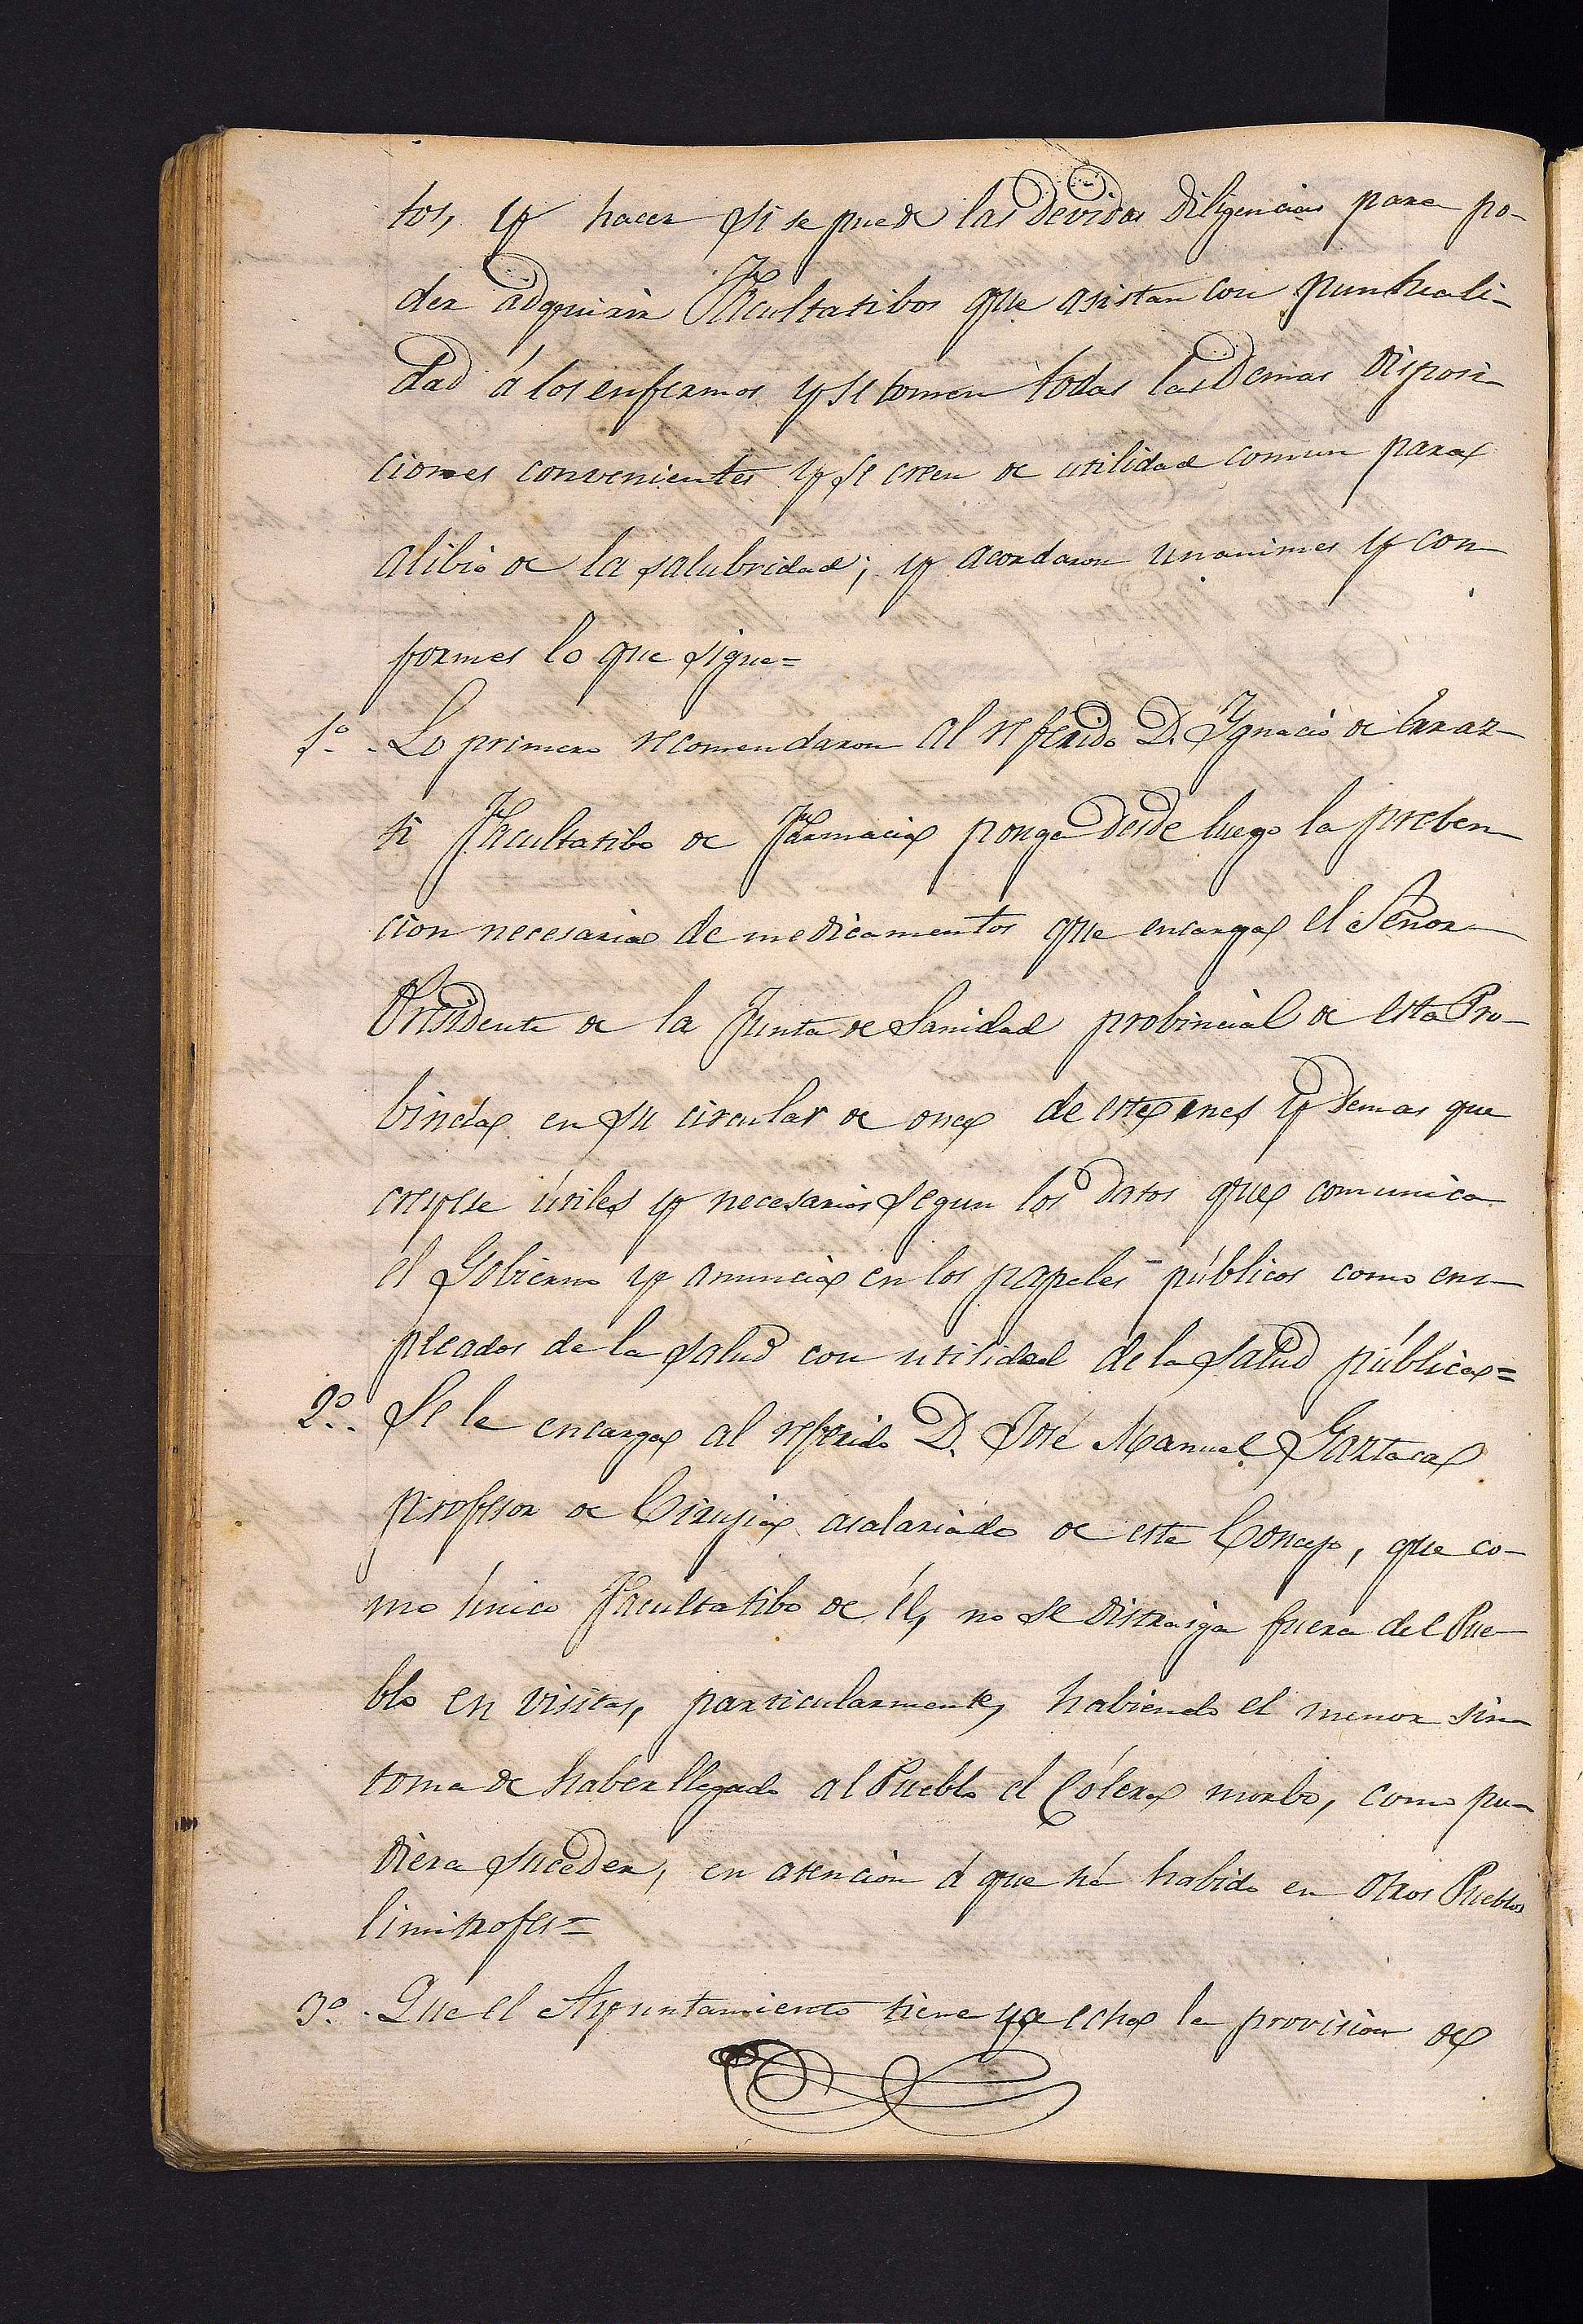 tos, y hacer si se puede las devidas diligencias para po-
der adquirir Facultatibos que asistan con puntuali-
dad á los enfermos y se tomen todas las demas disposi-
ciones convenientes y se creen de utilidad comun para
alibio de la salubridad; y acordaron unanimes y con-
formes lo que sigue=
1º. Lo primero recomendaron al referido D. Ygnacio de
ti Facultatibo de Farmacia ponga desde luego la preben-
cion necesaria de medicamentos que encarga el Señor
Presidente de la Junta de Sanidad probincial de esta Pro-
bincia en su circular de once de este mes y demas que
creyese útiles y necesarios segun los datos que comunica
el Gobierno y anuncia en los papeles públicos como em-
pleados de la salud con utilidad de la salud pública=
2º. Se le encarga al referido D. José Manuel Gartaca
profesor de Cirujia asalariado de este Concejo, que co-
mo único Facultatibo de él, no se distraiga fuera del Pue-
blo en visitas, particularmente, habiendo el menor sin-
toma de haber llegado al Pueblo el Cólera morbo, como pu-
diera suceder, en atencion á que há habido en otros Pueblos
limitrofes=
3º. Que el Ayuntamiento tiene ya echa la provision de